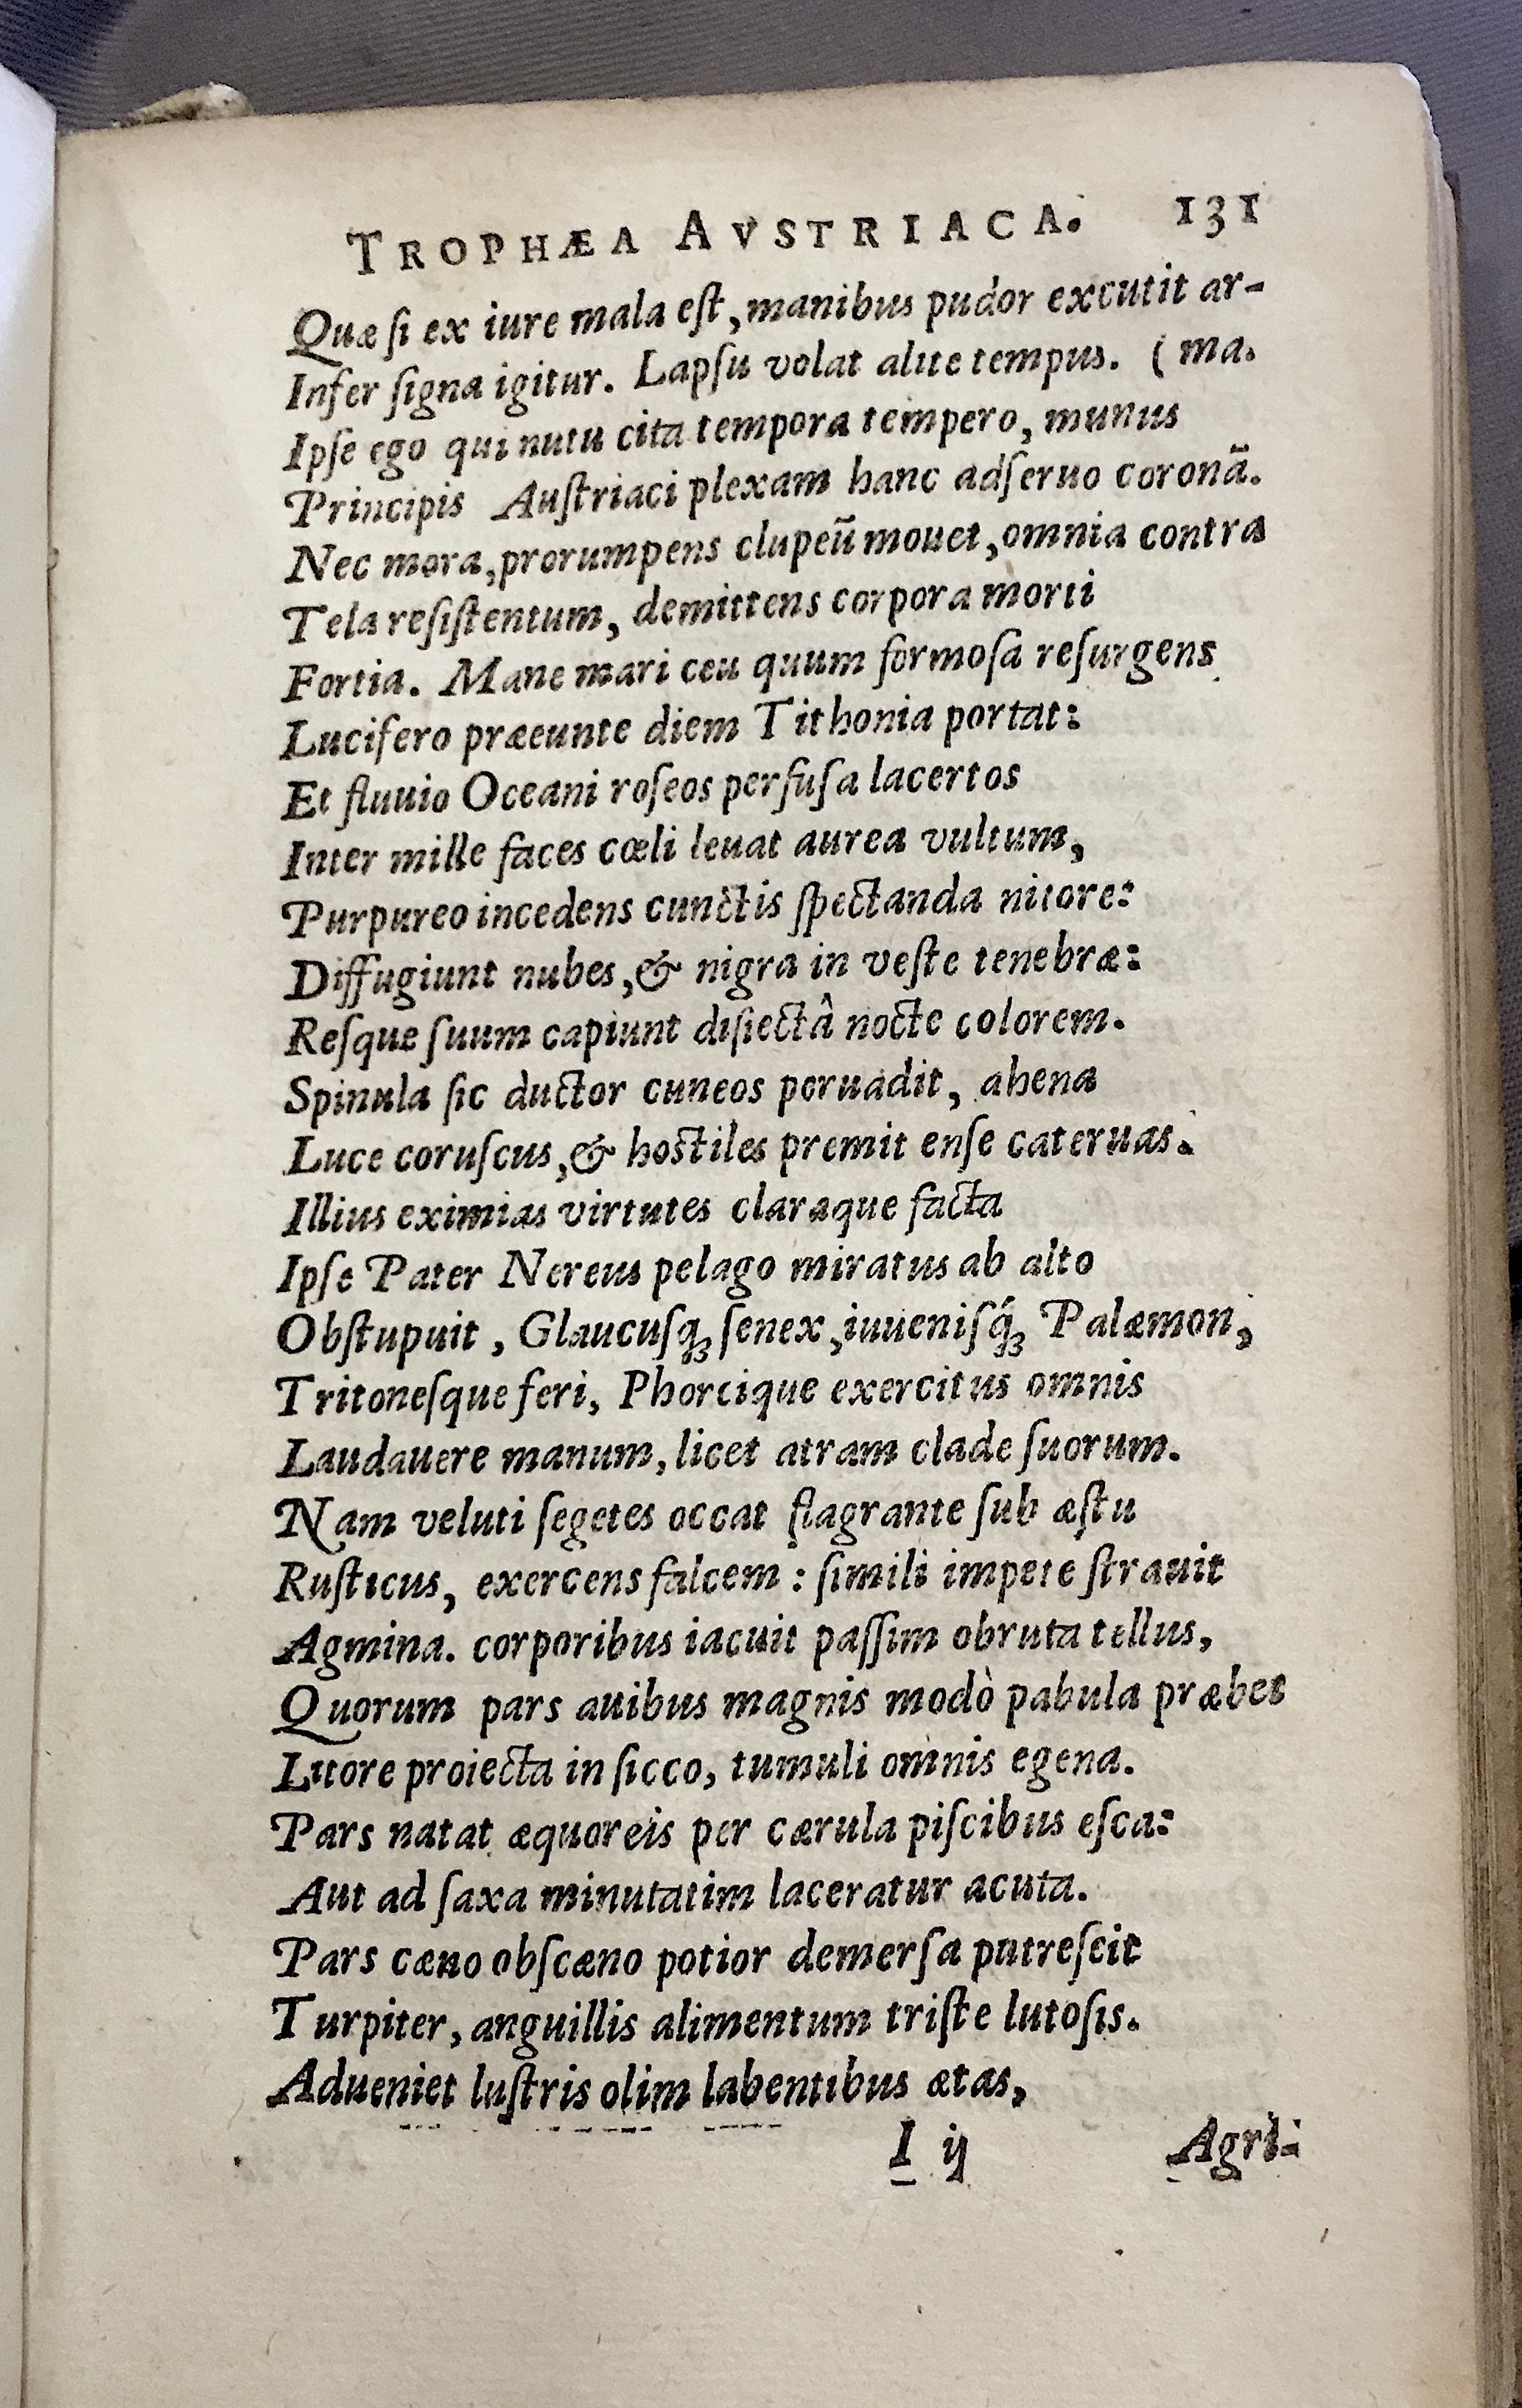 TROPHÆA AVSTRIACA. 131
Quæ ſi ex iure mala eſt, manibus pudor excutit ar-
Infer ſigna igitur. Lapſu volat alite tempus. (ma.
Ipſe ego qui nutu cita tempora tempero, munus
Principis Auſtriaci plexam hanc adſeruo coronã.
Nec mora, prorumpens clupeũ mouet, omnia contra
Tela reſiſtentum, demittens corpora morti
Fortia. Mane mari ceu quum formoſa reſurgens
Lucifero præeunte diem Tithonia portat:
Et fluuio Oceani roſeos perfuſa lacertos
Inter mille faces cœli leuat aurea vultum,
Purpureo incedens cunctis ſpectanda nitore:
Diffugiunt nubes, & nigra in veſte tenebræ:
Reſque ſuum capiunt diſiectâ nocte colorem.
Spinula ſic ductor cuneos peruadit, ahena
Luce coruſcus, & hostiles premit enſe cateruas.
Illius eximias virtutes claraque facta
Ipſe Pater Nereus pelago miratus ab alto
Obſtupuit, Glaucuſq; ſenex, iuueniſq́; Palæmon,
Tritoneſque feri, Phorcique exercitus omnis
Laudauere manum, licet atram clade ſuorum.
Nam veluti ſegetes occat flagrante ſub æſtu
Ruſticus, exercens falcem: ſimili impete ſtrauit
Agmina. corporibus iacuit paſſim obruta tellus,
Quorum pars auibus magnis modò pabula præbet
Litore proiecta in ſicco, tumuli omnis egena.
Pars natat æquoreis per cærula piſcibus eſca:
Aut ad ſaxa minutatim laceratur acuta.
Pars cæno obſcæno potior demerſa putreſcit
Turpiter, anguillis alimentum triſte lutoſis.
Adueniet luſtris olim labentibus ætas,
I ij Agri-